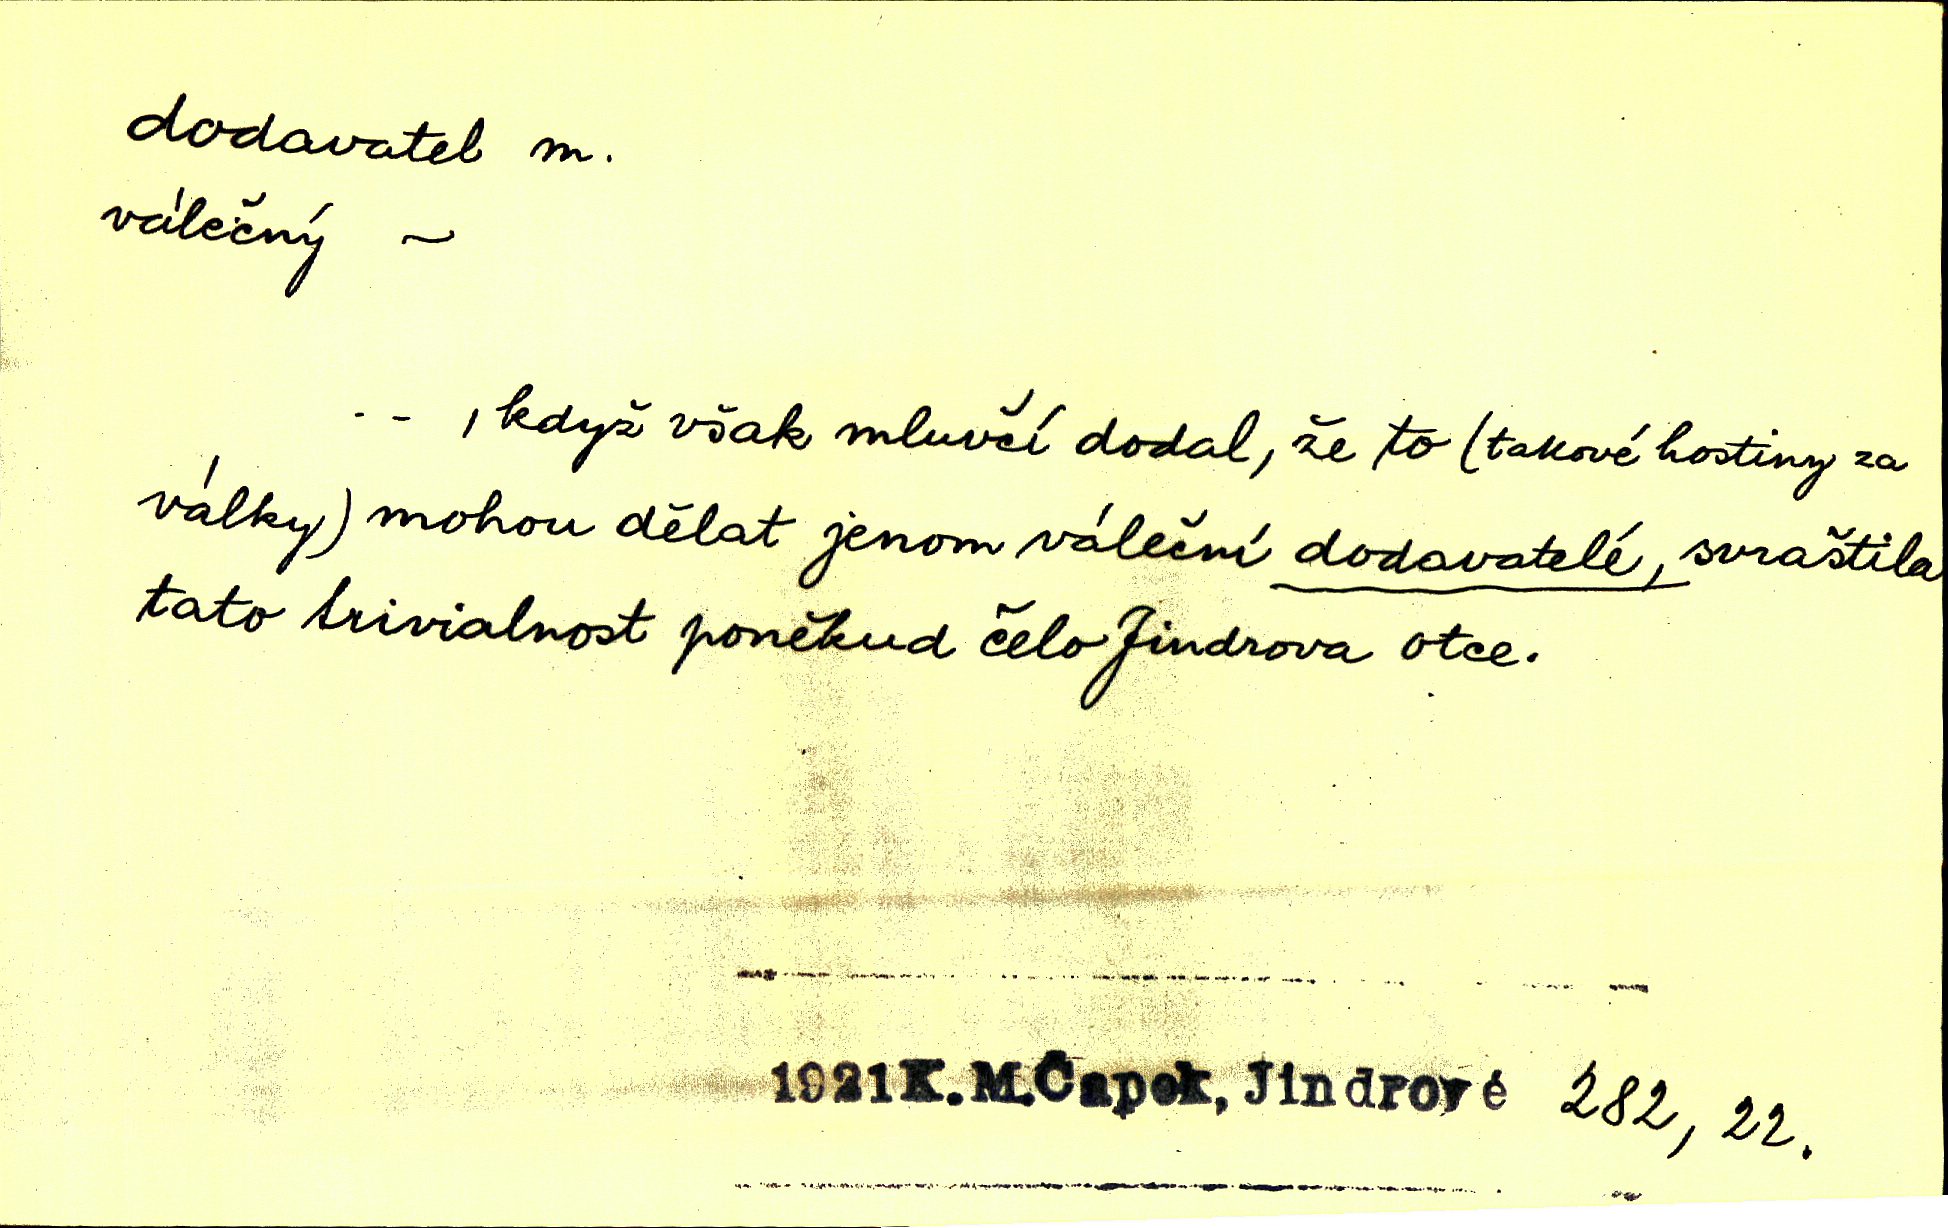 dodavatel m.
válečný ~
-- , když však mluvčí dodal, že to (takové hostiny za
války) mohou dělat jenom váleční dodavatelé, svraštila
tato trivialnost poněkud čelo Jindrova otce.
1921 K. M. Čapek, Jindrové 282, 22.